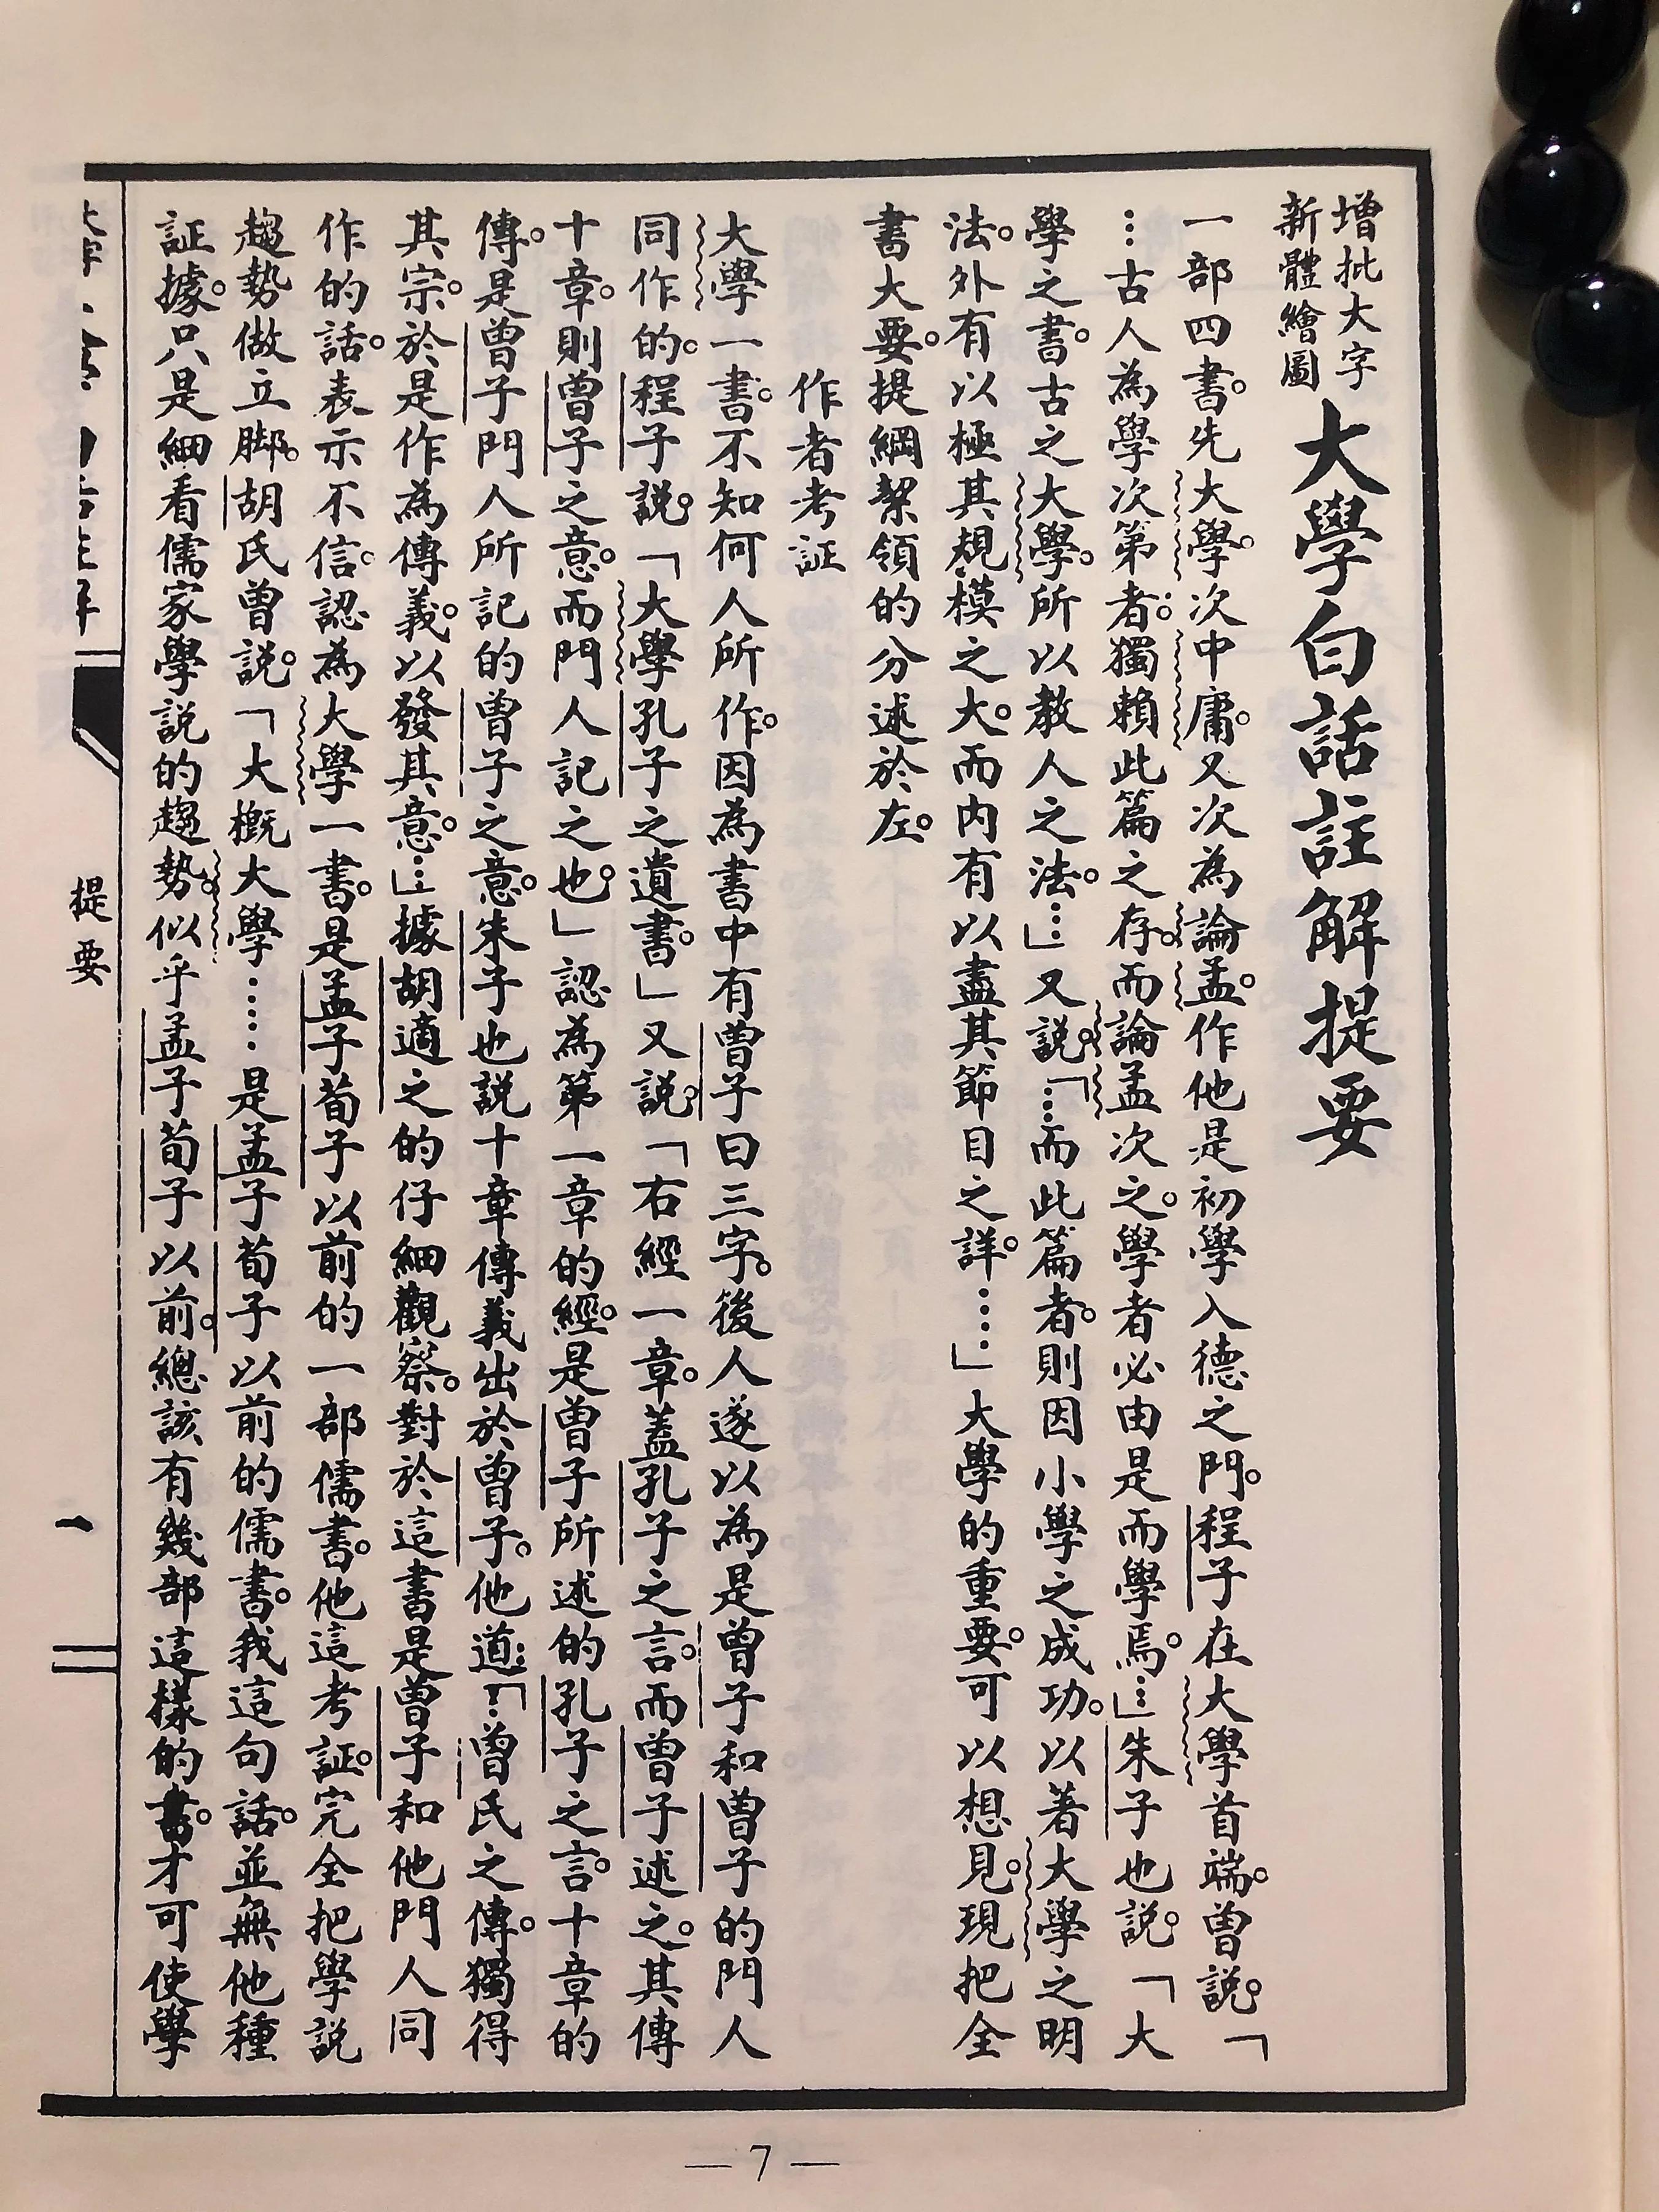 增批大字
新體繪圖
大學白話註解提要
一部四書。先大學。次中庸。又次為論孟。作他是初學入德之門。程子在大學首端。曾說。「
…古人為學次第者。獨賴此篇之存。而論孟次之。學者必由是而學焉。…」朱子也說。「大
學之書。古之大學。所以教人之法。…」又說。「…而此篇者。則因小學之成功。以著大學之明
法。外有以極其規模之大。而內有以盡其節目之詳。……」大學的重要。可以想見。現把全
書大要。提綱絜領的分述於左。
作者考証
大學一書。不知何人所作。因為書中有曾子曰三字。後人遂以為是曾子和曾子的門人
同作的。程子說。「大學孔子之遺書。」又說。「右經一章。蓋孔子之言。而曾子述之。其傳
十章。則曾子之意。而門人記之也。」認為第一章的經。是曾子所述的孔子之言。十章的
傳。是曾子門人所記的曾子之意。朱子也說十章傳義出於曾子。他道。「…曾氏之傳。獨得
其宗。於是作為傳義。以發其意。…」據胡適之的仔細觀察。對於這書是曾子和他門人同
作的話。表示不信。認為大學一書。是孟子荀子以前的一部儒書。他這考証。完全把學說
趨勢做立腳。胡氏曾說。「大概大學……是孟子荀子以前的儒書。我這句話。並無他種
証據。只是細看儒家學說的趨勢。似乎孟子荀子以前。總該有幾部這樣的書。才可使學
提要
一
— 7 —